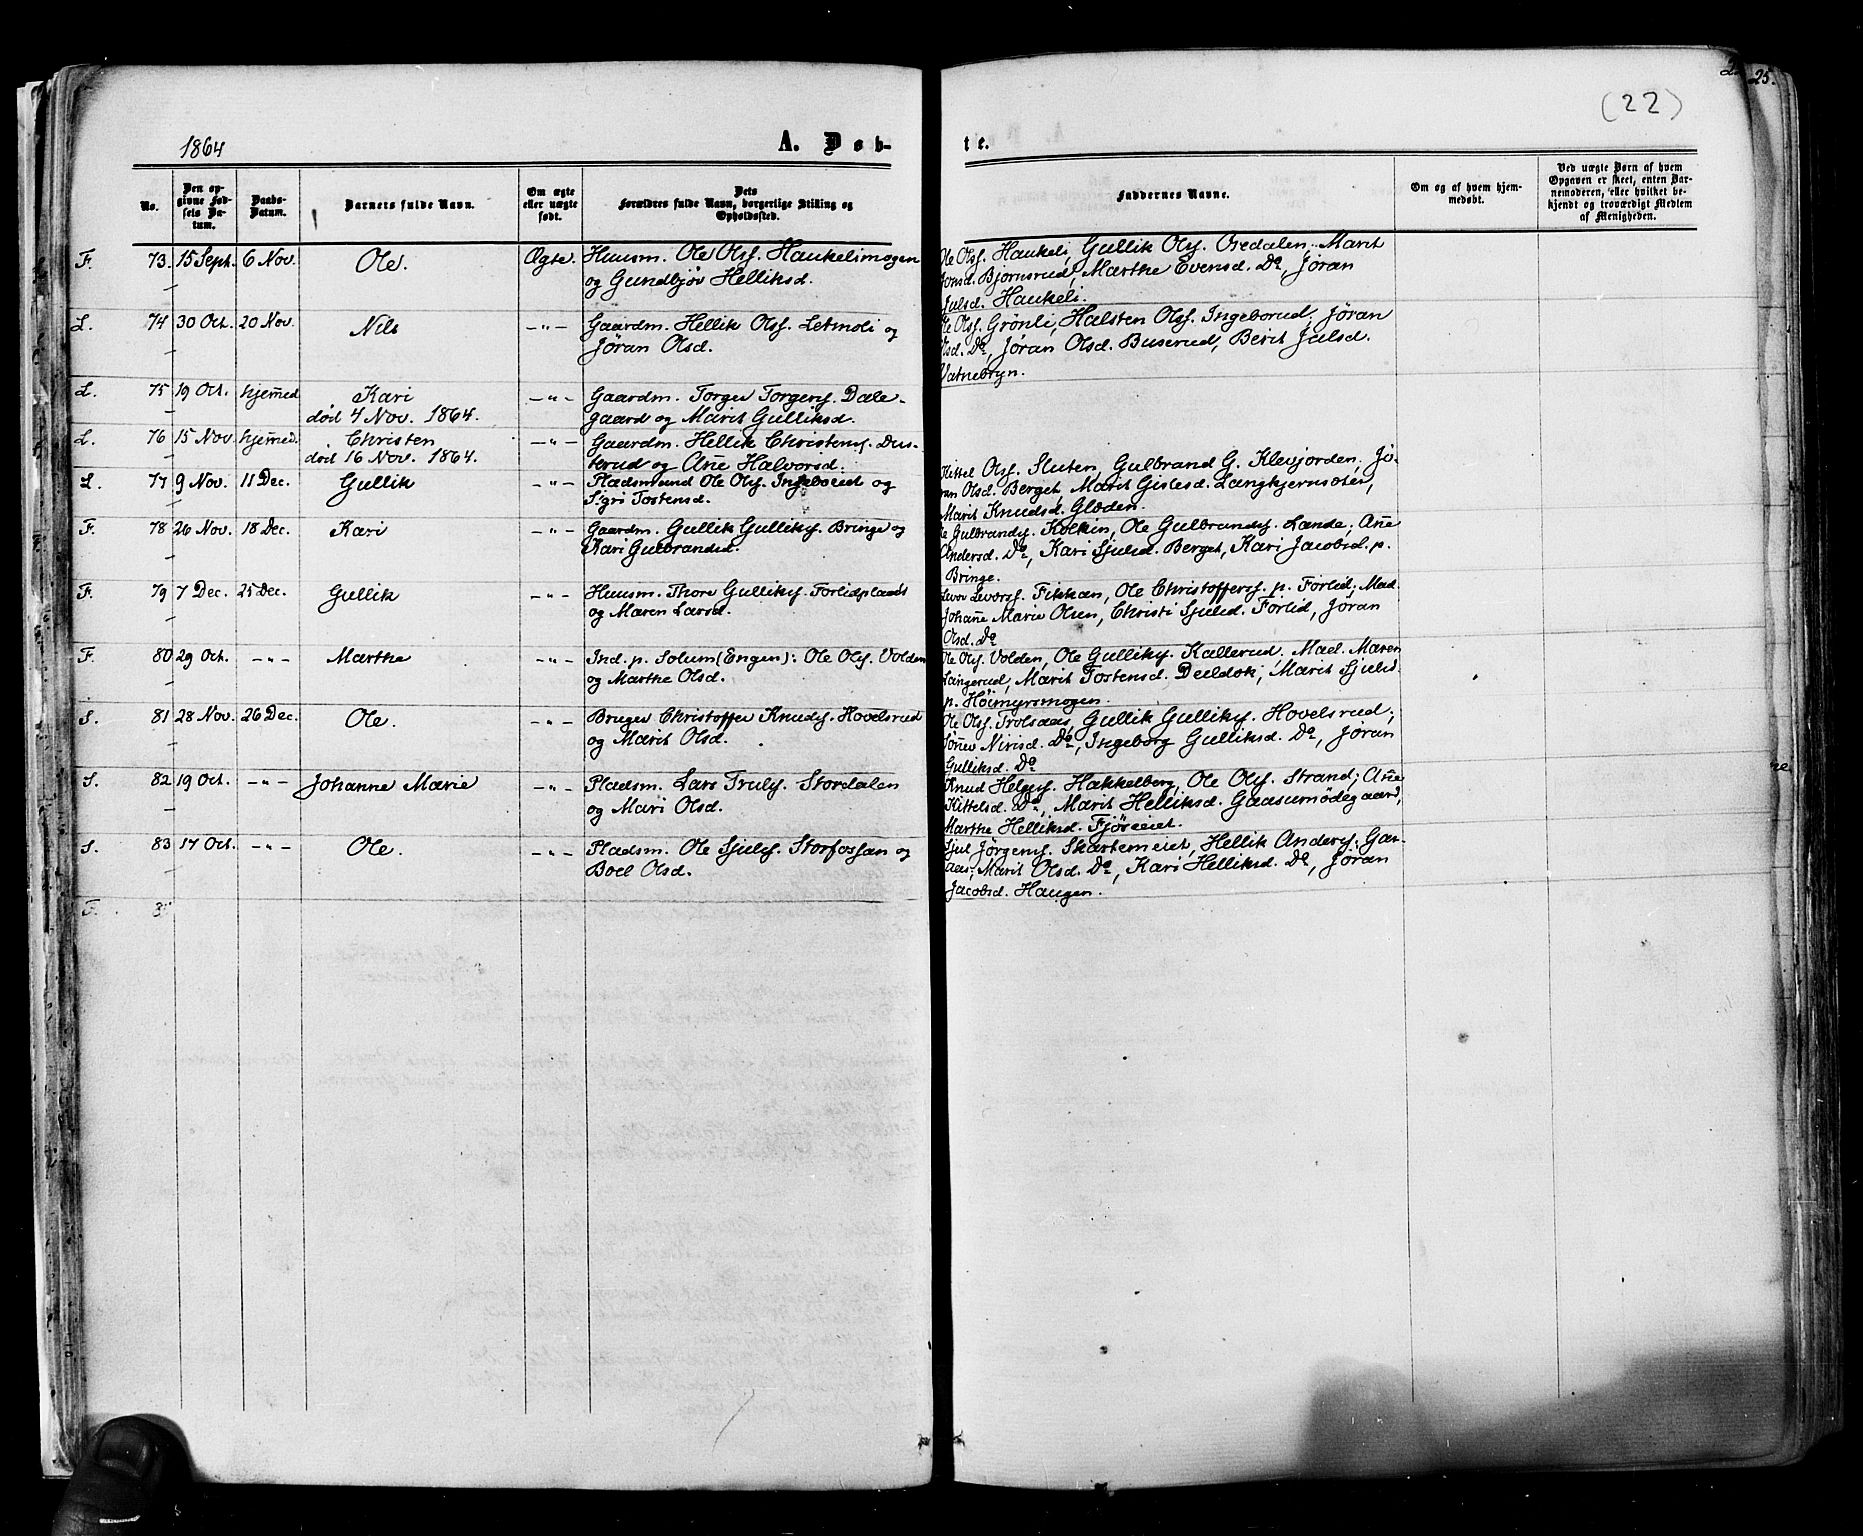 25.
(22)
1864
A. Døb-
te.
No.
Den op-
givne Fød-
sels Da-
tum.
Daabs-
Datum.
Barnets fulde Navn.
Om ægte
eller uægte
født.
Dets
Forældres fulde Navn, borgerlige Stilling og
Opholdssted.
Faddernes Navne.
Om og af hvem hjem-
medøbt.
Ved uægte Børn af hvem
Opgaven er skeet, enten Bar-
nemoderen, eller hvilket be-
kjendt og troværdigt Medlem
af Menigheden.
F. 73. 15 Sept. 6 Nov. Ole. Ægte Huusm. Ole Olss. Haukelimogen
og Gundbjør Helliksd.
Ole Olss. Haukeli, Gullik Olss. Marit
Jonsd. Bjornsrud, Marthe Evensd. Do, Jøran
Julsd. Haukeli.
L. 74 30 Oct. 20 Nov. Nils —"— Gaardm. Hellik Olss. Letmoli og
Jøran Olsd.
Ole Olss. Grønli, Halsten Olss. Ingeborud, Jøran
Olsd. Do, Jøran Olsd. Buserud, Berit Julsd.
Vatnebryn.
L. 75 19 Oct. hjemmed Kari —"— Gaardm. Torger Torgers. Dale-
død 4 Nov. 1864. gaard og Marit Gulliksd.
L. 76 15 Nov. hjemmed. Christen —"— Gaardm. Hellik Christens. Dus-
død 16 Nov. 1864. terud og Ane Halvorsd.
L. 77 9 Nov. 11 Dec. Gullik —"— Pladsmand Ole Olss. Ingeboreiet og
Sigri Tostensd.
Kittel Olss. Sluten, Gulbrand G. Klevjorden, Jø-
ran Olsd. Berget, Marit Gislesd. Langkjernsoter,
Marit Knudsd. Gloden.
F. 78 26 Nov. 18 Dec. Kari —"— Gaardm. Gullik Gulliks. Bringe og
Kari Gulbrandsd.
Ole Gulbrands. Kolkin, Ole Gulbrands. Lande, Ane
Andersd. Do, Kari Sjulsd. Berget, Kari Jacobsd. p.
Bringe.
F. 79 7 Dec. 25 Dec. Gullik —"— Huusm. Thore Gulliks. Forlidplads
og Maren Larsd.
Levor Levorss. Fikkan, Ole Christofferss. p. Forlid, Mad.
Johane Marie Olsen, Christi Sjulsd. Forlid, Jøran
Olsd. Do
F. 80 29 Oct. —"— Marthe —"— Ind. p. Solum (Engen): Ole Olss. Volden
og Marthe Olsd.
Ole Olss. Volden, Ole Gulliks. Kallerud, Mad. Maren
Langerud, Marit Tostensd. Deildok, Marit Sjulsd.
p. Höimyrsmogen.
S. 81 28 Nov. 26 Dec. Ole. —"— Bruger Christoffer Knuds. Hovelsrud
og Marit Olsd.
Ole Olss. Trolsaas, Gullik Gulliks. Hovelsrud,
Nirisd. Do, Ingeborg Gulliksd. Do, Jøran
Gulliksd. Do
S. 82 19 Oct. —"— Johanne Marie —"— Pladsm. Lars Truls. Stordalen
og Mari Olsd.
Knud Helges. Hakkelberg, Ole Olss. Strand, Ane
Kittelsd. Do, Marit Helliksd. Gaasumødegaard,
Marthe Helliksd. Fjøseiet.
S. 83 17 Oct. —"— Ole. —"— Pladsm. Ole Sjuls. Storfossan og
Boel Olsd.
Sjul Jørgens. Skartemeiet, Hellik Anders. Gar-
aas, Marit Olsd. Do, Kari Helliksd. Do, Jøran
Jacobsd. Haugen.
F.